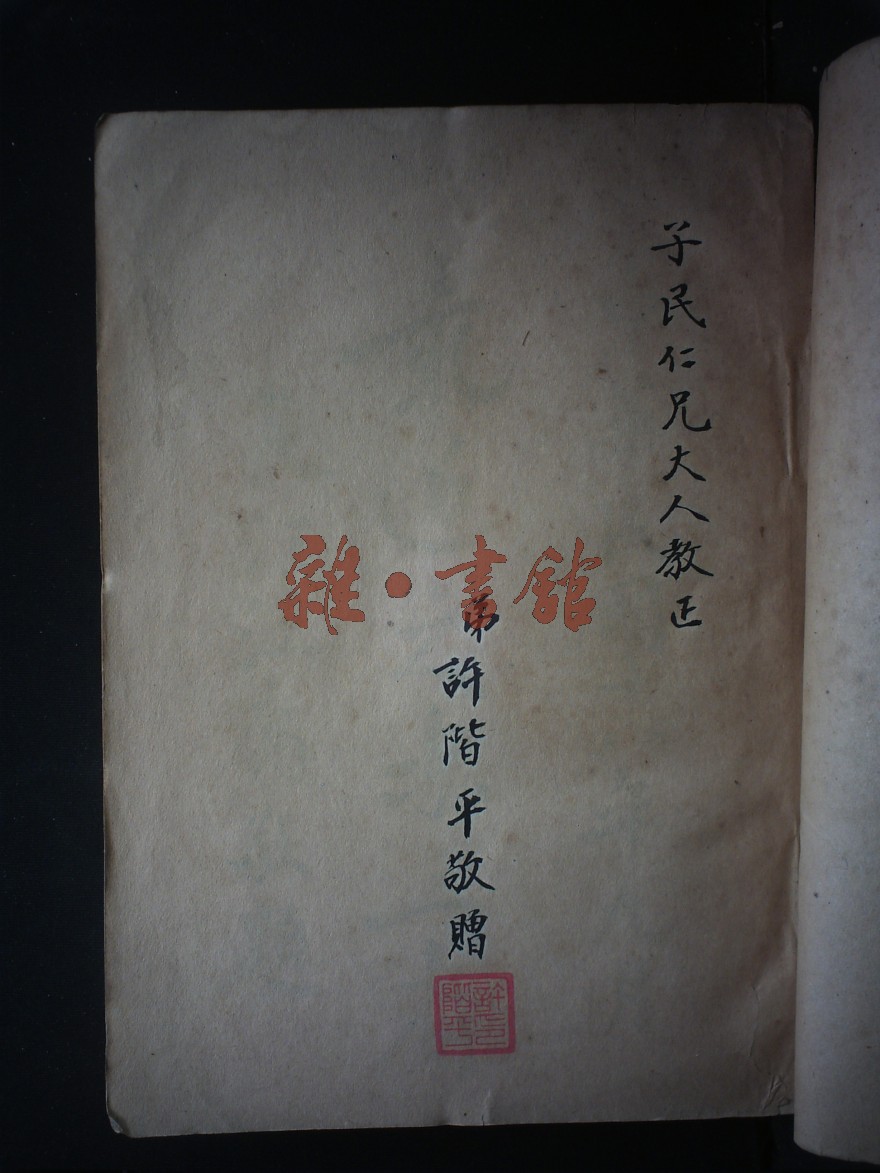 子民仁兄大人教正
弟許階平敬贈
許印階平
雜·書館